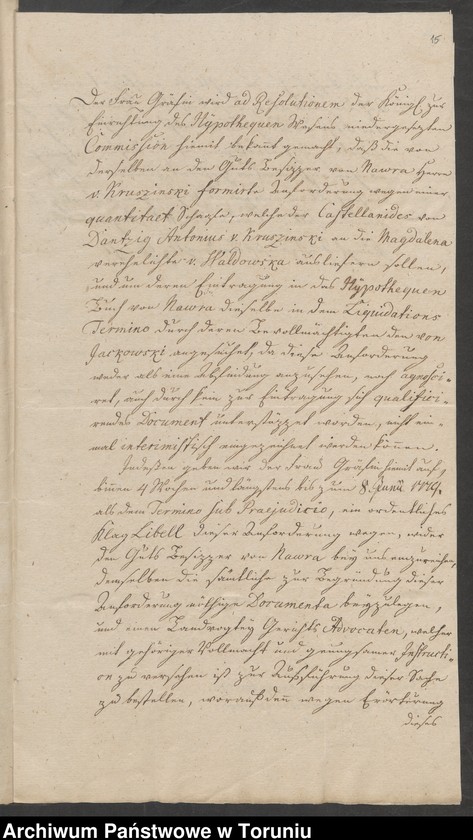 15
Der Frau Gräfin wird ad Resolutionem der Königl. zur
Einrichtung des Hÿpothequen Wesens niedergesetzten
Commission hiemit bekant gemacht, daß die von
Derselben an den Guts Besizzer von Nawra Herrn
v. Kruszinski formirte Anforderung wegen einer
quantitaet Schaafe, welche der Castellanides von
Dantzig Antonius v. Kruszinski an die Magdalena
verehelichte v. Haldowska ausliefern sollen,
und um deren Eintragung in das Hÿpothequen
Buch von Nawra dieselbe in dem Liquidations
Termino durch deren Bevollmächtigten den von
Jackowski angesuchet, da diese Anforderung
weder als eine Abfindung anzusehen, noch agnosci-
ret, auch durch kein zur Eintragung sich qualifici-
rendes Document unterstüzzet worden, nicht ein-
mal interimistisch eingezeichnet werden können.
Indeßen geben wir der Frau Gräfin hiemit auf,
binnen 4 Wochen und längstens bis zum 8. Junii 1774.
als dem Termino sub Praejudicio, ein ordentliches
Klag Libell dieser Anforderung wegen, wider
den Guts Besizzer von Nawra beÿ uns einzureichen,
demselben die sämtliche zur Begründung dieser
Anforderung nöthige Documenta beÿzulegen,
und einen Landvogteÿ Gerichts Advocaten, welcher
mit gehöriger Vollmacht und genugsamer Instructi-
on zu versehen ist zur Ausführung dieser Sache
zu bestellen, worauf denn wegen Erörterung
dieses
Archiwum Państwowe w Toruniu